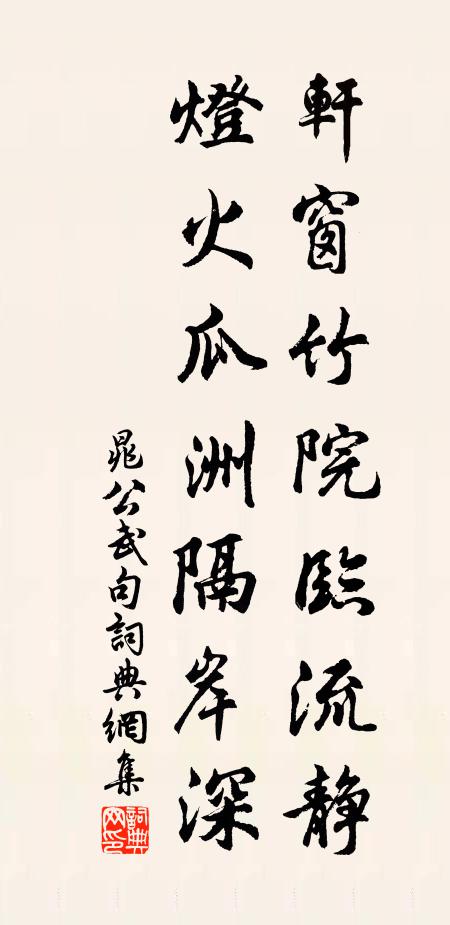 軒窗竹院臨流靜
燈火瓜洲隔岸深
晁公武句詞典網集
詞典網印